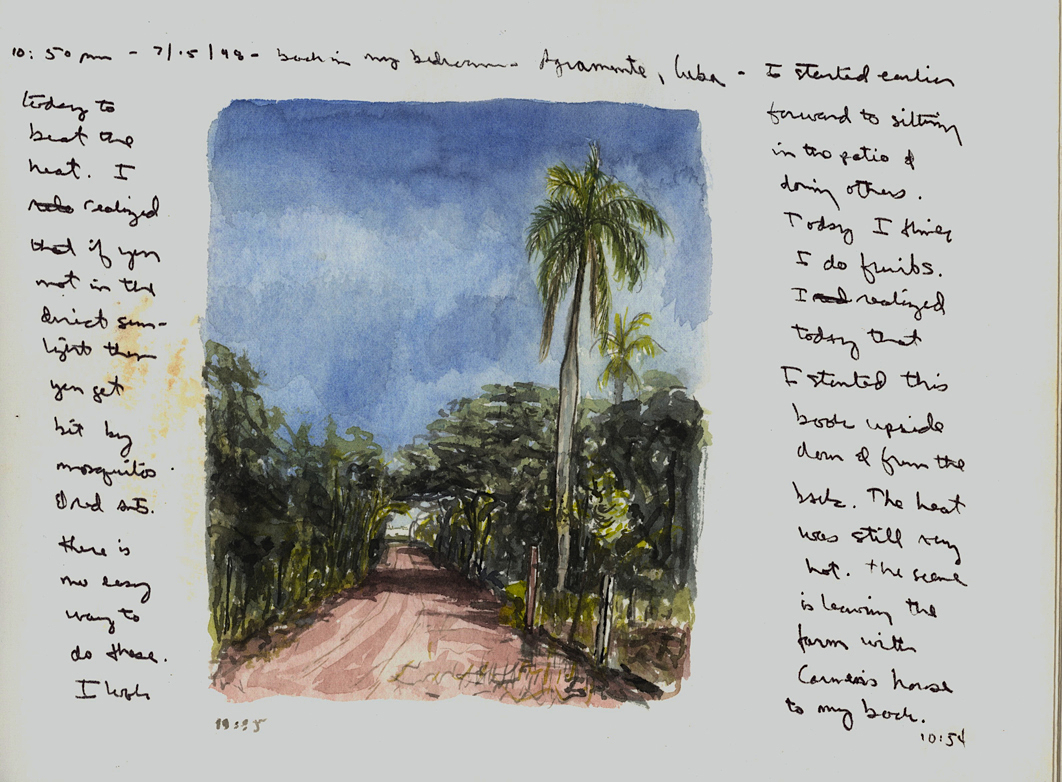 10:50 pm - 7/15/98 - back in my bedroom - Agramonte, Cuba - I started earlier
today to
beat the
heat. I
realized
that if you
not in the
direct sun-
light then
you get
bit by
mosquitos
& red ants.
there is
no easy
way to
do these.
I look
forward to sitting
in the patio &
doing others.
Today I think
I do fruits.
I realized
today that
I started this
book upside
down & from the
back. The heat
was still very
hot. The scene
is leaving the
farm with
house
to my back.
10:54